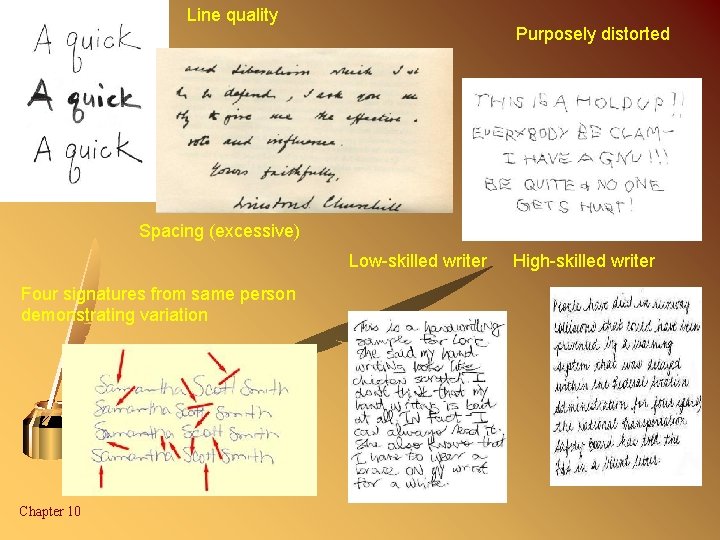 Line quality
A quick
A quick
A quick
Purposely distorted
and Liberalism which I st
to defend, I ask you me
to give me the effective
vote and influence.
Yours faithfully,
Winston S. Churchill
THIS IS A HOLDUP!!
EVERYBODY BE CLAM-
I HAVE A GNU!!!
BE QUITE & NO ONE
GETS HURT!
Spacing (excessive)
Low-skilled writer
High-skilled writer
Four signatures from same person
demonstrating variation
Samantha Scott Smith
Samantha Scott Smith
Samantha Scott Smith
Samantha Scott Smith
This is a handwriting
sample for Lore
She said my hand
writing looks like
chicken scratch. I
dont think that my
hand writing is bad
at all, IN fact I
can always read it.
She also knows that
I have to wear a
brace on my wrist
for a while.
People have died in runway
collisions that could have been
prevented by a warning
system that was delayed
within the Federal Aviation
Administration for four years,
the National Transportation
Safety Board has told the
FAA in a blunt letter.
Chapter 10